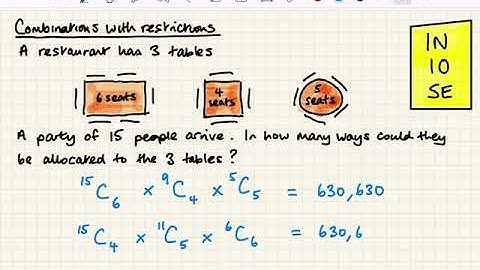 Combinations with restrictions
A restaurant has 3 tables
6 seats
4 seats
5 seats
IN
10
SE
A party of 15 people arrive. In how many ways could they
be allocated to the 3 tables?
¹⁵C₆ × ⁹C₄ × ⁵C₅ = 630,630
¹⁵C₄ × ¹¹C₅ × ⁶C₆ = 630,6